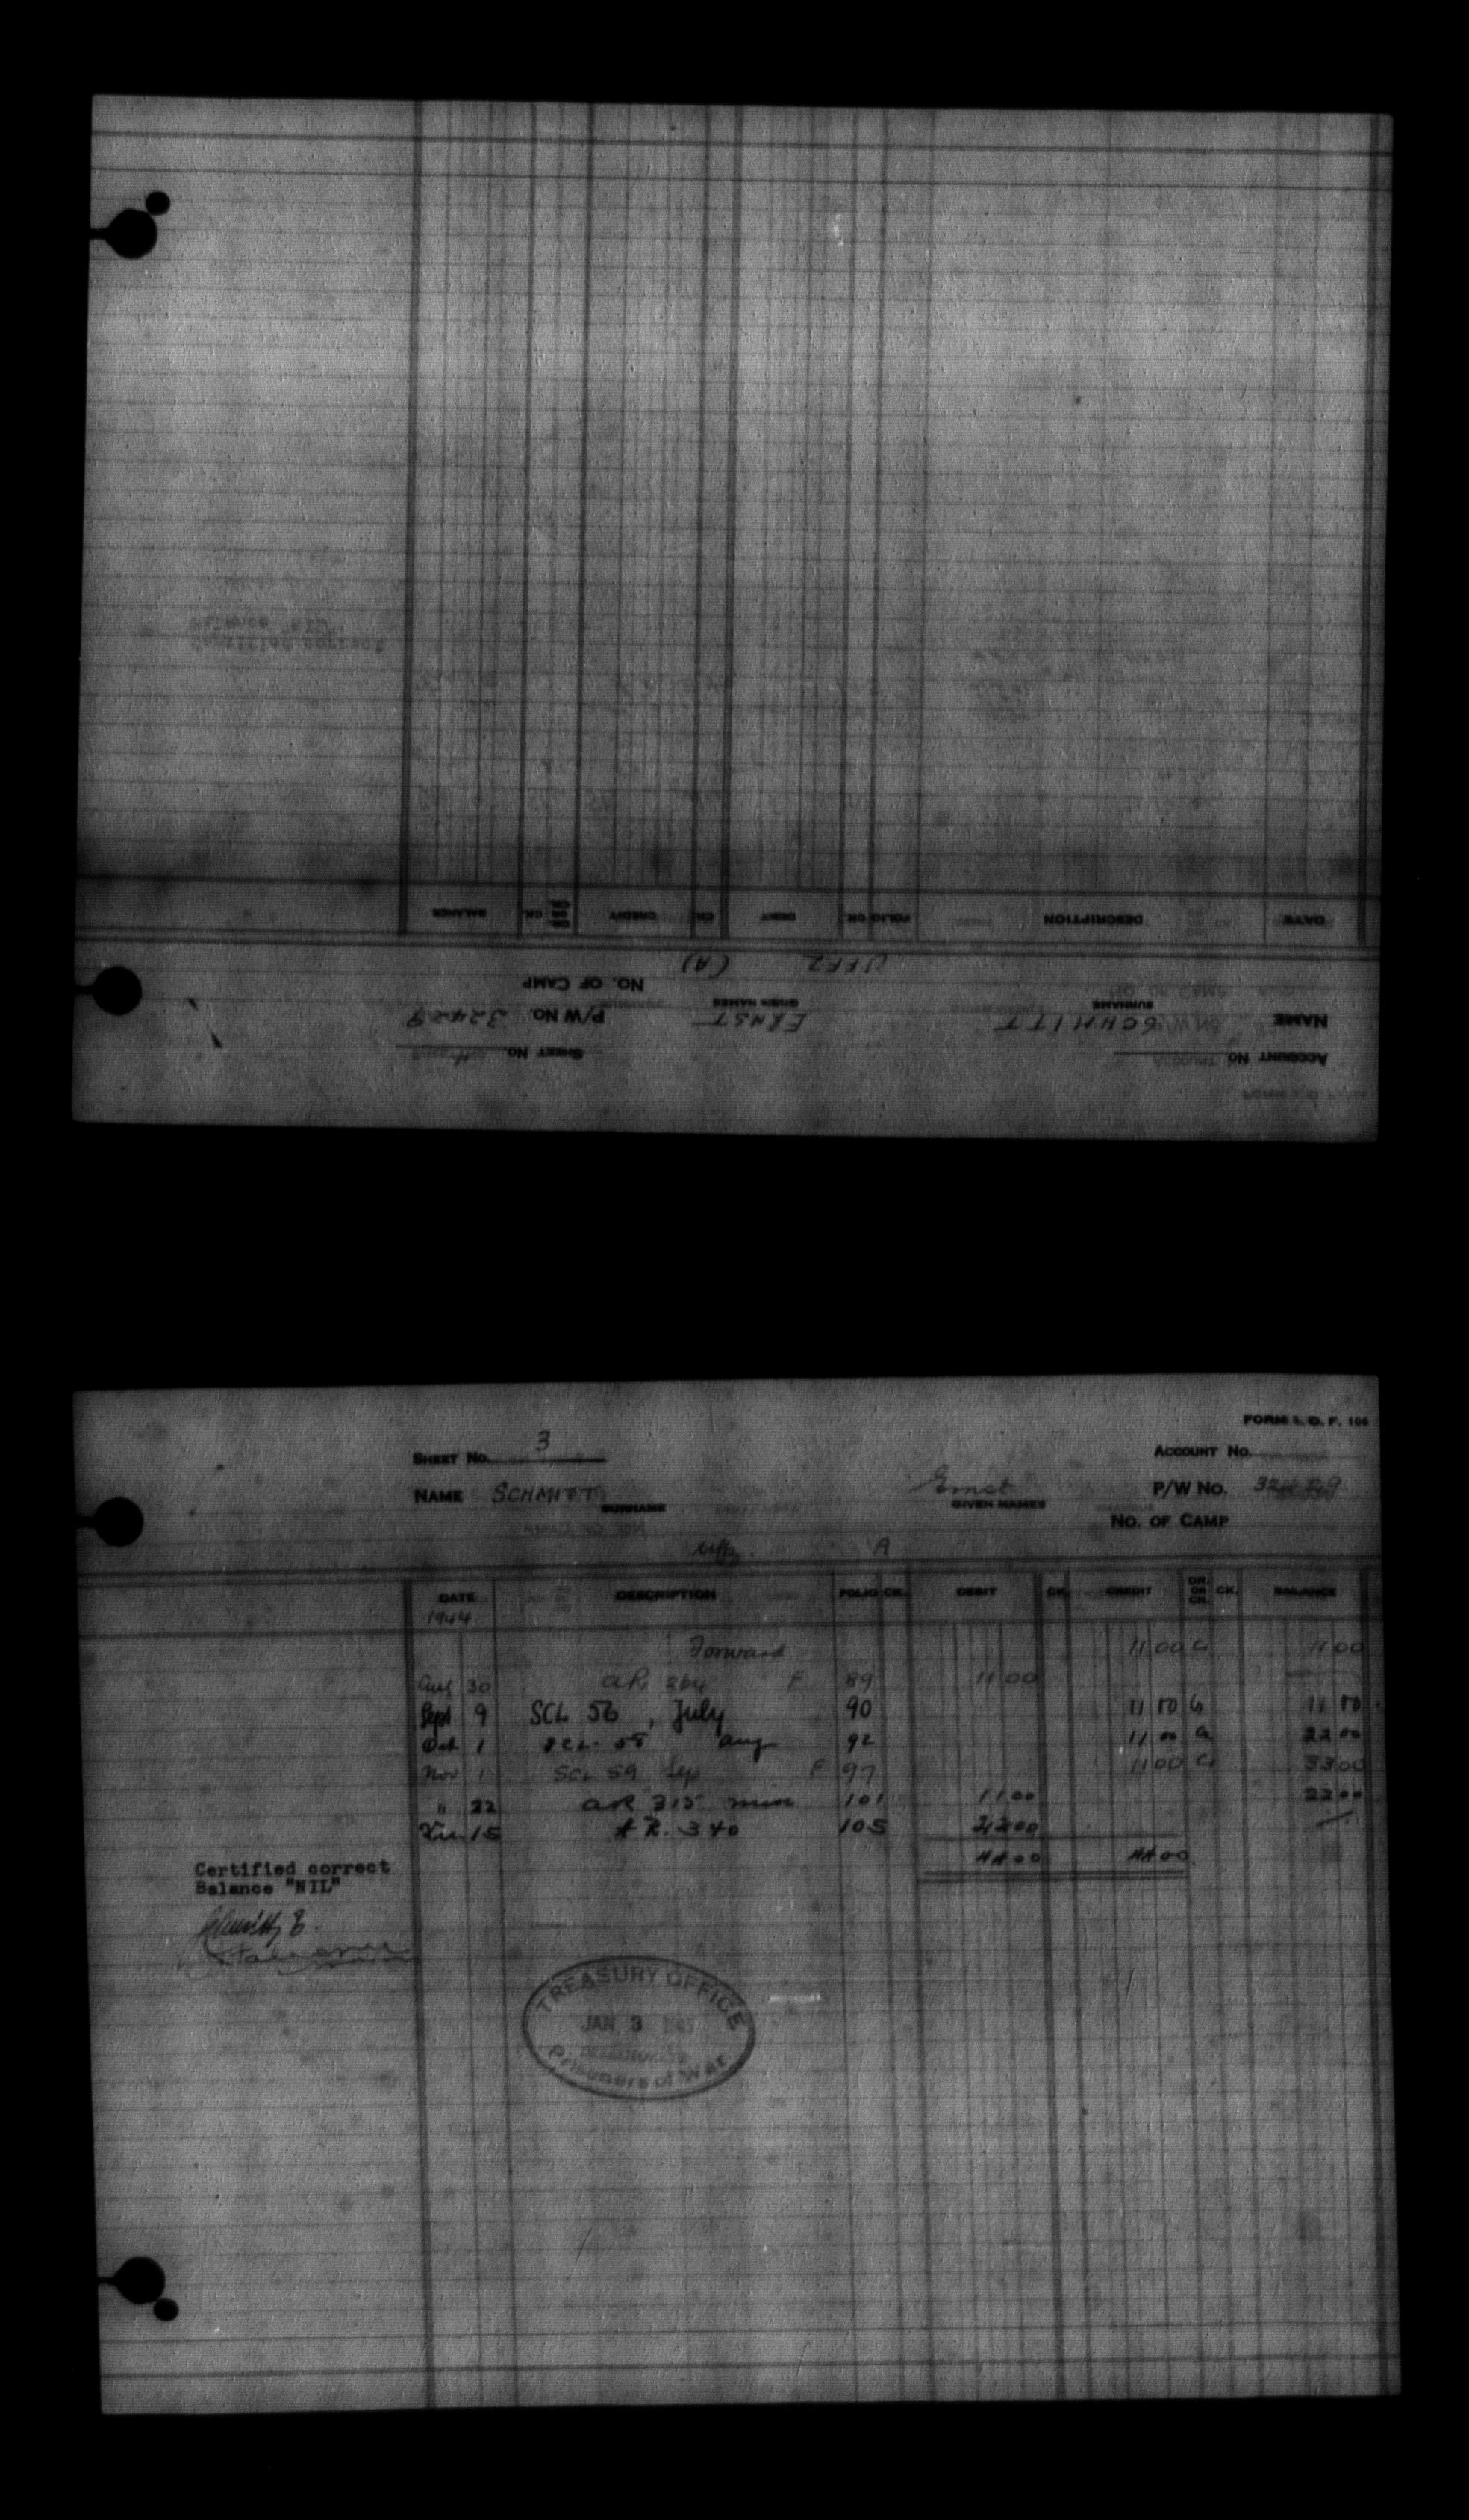 ACCOUNT NO.
SHEET NO.
NAME SCHMITT ERNST P/W NO. 32429
SURNAME GIVEN NAMES
NO. OF CAMP
UFFZ (A)
DATE DESCRIPTION FOLIO CK. DEBIT CK. CREDIT DR. OR CR. CK. BALANCE
FORM I. O. F. 106
SHEET NO. 3 ACCOUNT NO.
NAME SCHMITT Ernst P/W NO. 32429
SURNAME GIVEN NAMES
NO. OF CAMP
Uffz. A
DATE DESCRIPTION FOLIO CK. DEBIT CK. CREDIT DR. OR CR. CK. BALANCE
1944
Forward 11 00 Cr 11 00
Aug 30 AR 264 F 89 11 00
Sept 9 SCL 56, July 90 11 00 Cr 11 00
Oct 1 SCL 58 Aug 92 11 00 Cr 22 00
Nov 1 SCL 59 Sep F 97 11 00 Cr 33 00
" 22 AR 315 101 11 00 22 00
15 AR. 340 105 22 00
44 00 44 00
Certified correct
Balance "NIL"
TREASURY OFFICE
JAN 3
Prisoners of War